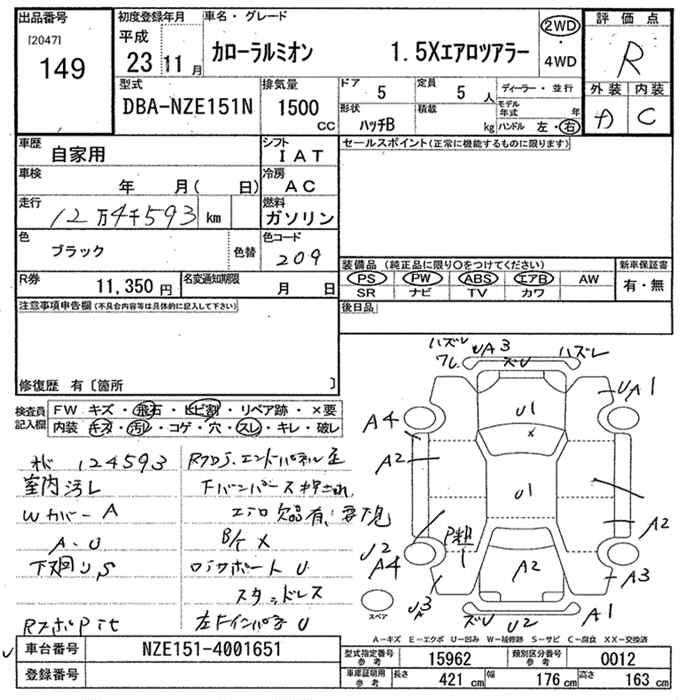 出品番号
[2047]
149
初度登録年月
平成
23 11 月
車名・グレード
カローラルミオン 1.5Xエアロツアラー
2WD
・
4WD
評価点
R
外装 内装
C
型式
DBA-NZE151N
排気量
1500
CC
ドア
5
定員
5 人
形状
ハッチB
積載
kg
ディーラー・並行
モデル年式 年
ハンドル 左・右
車歴
自家用
シフト
IAT
車検
年 月( 日)
冷房
AC
走行
12万4千593 km
燃料
ガソリン
色
ブラック
色替
色コード
209
R券
11,350 円
名変通知期限
月 日
セールスポイント(正常に機能するものに限ります)
装備品 (純正品に限り○をつけてください)
PS PW ABS エアB AW
SR ナビ TV カワ
新車保証書
有・無
後日品
注意事項申告欄(不具合内容等は具体的に記入して下さい)
修復歴 有〔箇所 〕
検査員
記入欄
FW キズ・飛石・ヒビ割・リペア跡・×要
内装 キズ・汚レ・コゲ・穴・スレ・キレ・破レ
124593
室内汚レ
Wカバー A
A・U
下廻りS
エアロ欠品有、要下見
B/k X
ロッカボート U
スタッドレス
ハズレ
ワレ
UA3
ズU
ハズレ
U1
UA1
A4
A2
X
U1
A2
U2
A4
P粗
A2
A3
ズU
U2
A1
スペア
A-キズ E-エクボ U-凹み W-補修跡 S-サビ C-腐食 XX-交換済
車台番号
NZE151-4001651
登録番号
型式指定番号
参考
15962
類別区分番号
参考
0012
車庫証明用
参考
長さ 421 cm
幅 176 cm
高さ 163 cm